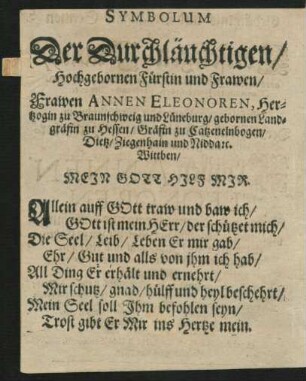 SYMBOLUM
Der Durchläuchtigen/
Hochgebornen Fürstin und Frawen/
Frawen ANNEN ELEONOREN, Her-
tzogin zu Braunschweig und Lüneburg/ gebornen Land-
gräfin zu Hessen/ Gräfin zu Catzenelnbogen/
Dietz/ Ziegenhain und Nidda ꝛc.
Wittben/
MEIN GOTT HILF MIR.
Allein auff GOtt traw und baw ich/
GOtt ist mein HErr/ der schützet mich/
Die Seel/ Leib/ Leben Er mir gab/
Ehr/ Gut und alls von jhm ich hab/
All Ding Er erhält und ernehrt/
Mir schutz/ gnad/ hülff und heyl beschehrt/
Mein Seel soll Ihm befohlen seyn/
Trost gibt Er Mir ins Hertze mein.